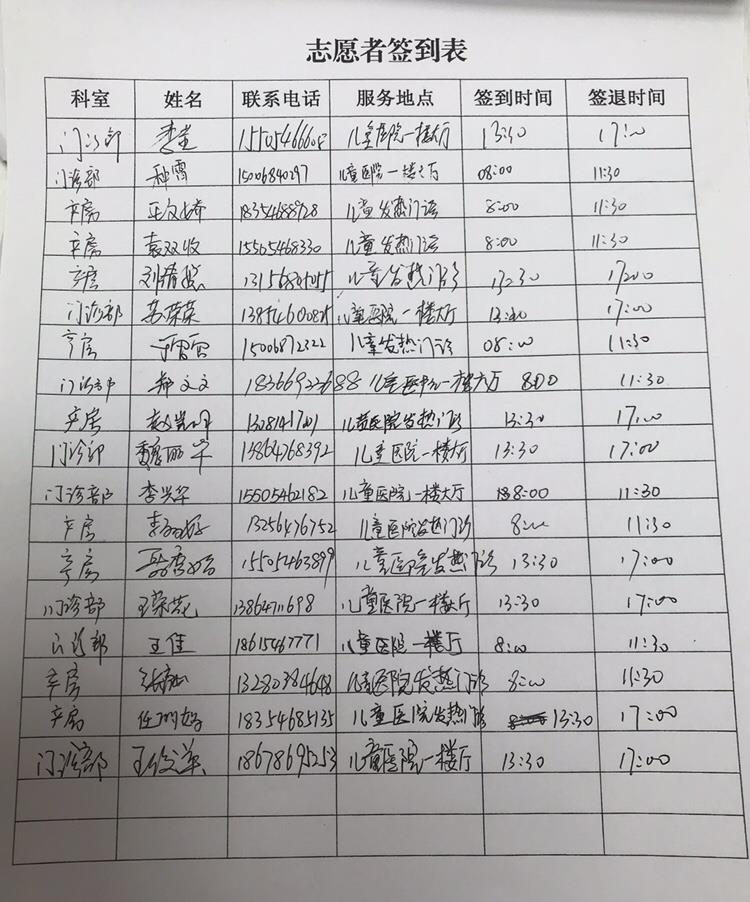 志愿者签到表
科室 姓名 联系电话 服务地点 签到时间 签退时间
门诊部 15505466608 儿童医院一楼大厅 13:30 17:00
门诊部 种雷 15006840297 儿童医院一楼大厅 08:00 11:30
产房 18354688928 儿童发热门诊 8:00 11:30
产房 袁双收 15505468330 儿童发热门诊 8:00 11:30
产房 儿童发热门诊 13:30 17:00
门诊部 苏荣荣 儿童医院一楼大厅 13:30 17:00
产房 15006872322 儿童发热门诊 08:00 11:30
门诊部 郑文文 18366922688 儿童医院一楼大厅 8:00 11:30
产房 儿童医院发热门诊 13:30 17:00
门诊部 魏丽华 13864768392 儿童医院一楼大厅 13:30 17:00
门诊部 李兴华 15505462182 儿童医院一楼大厅 8:00 11:30
产房 13256476752 儿童医院发热门诊 8:00 11:30
产房 15505463899 儿童医院发热门诊 13:30 17:00
门诊部 王荣花 13864711698 儿童医院一楼大厅 13:30 17:00
门诊部 王佳 18615467771 儿童医院一楼大厅 8:00 11:30
产房 13280384648 儿童医院发热门诊 8:00 11:30
产房 18354685135 儿童医院发热门诊 13:30 17:00
门诊部 18678695253 儿童医院一楼大厅 13:30 17:00